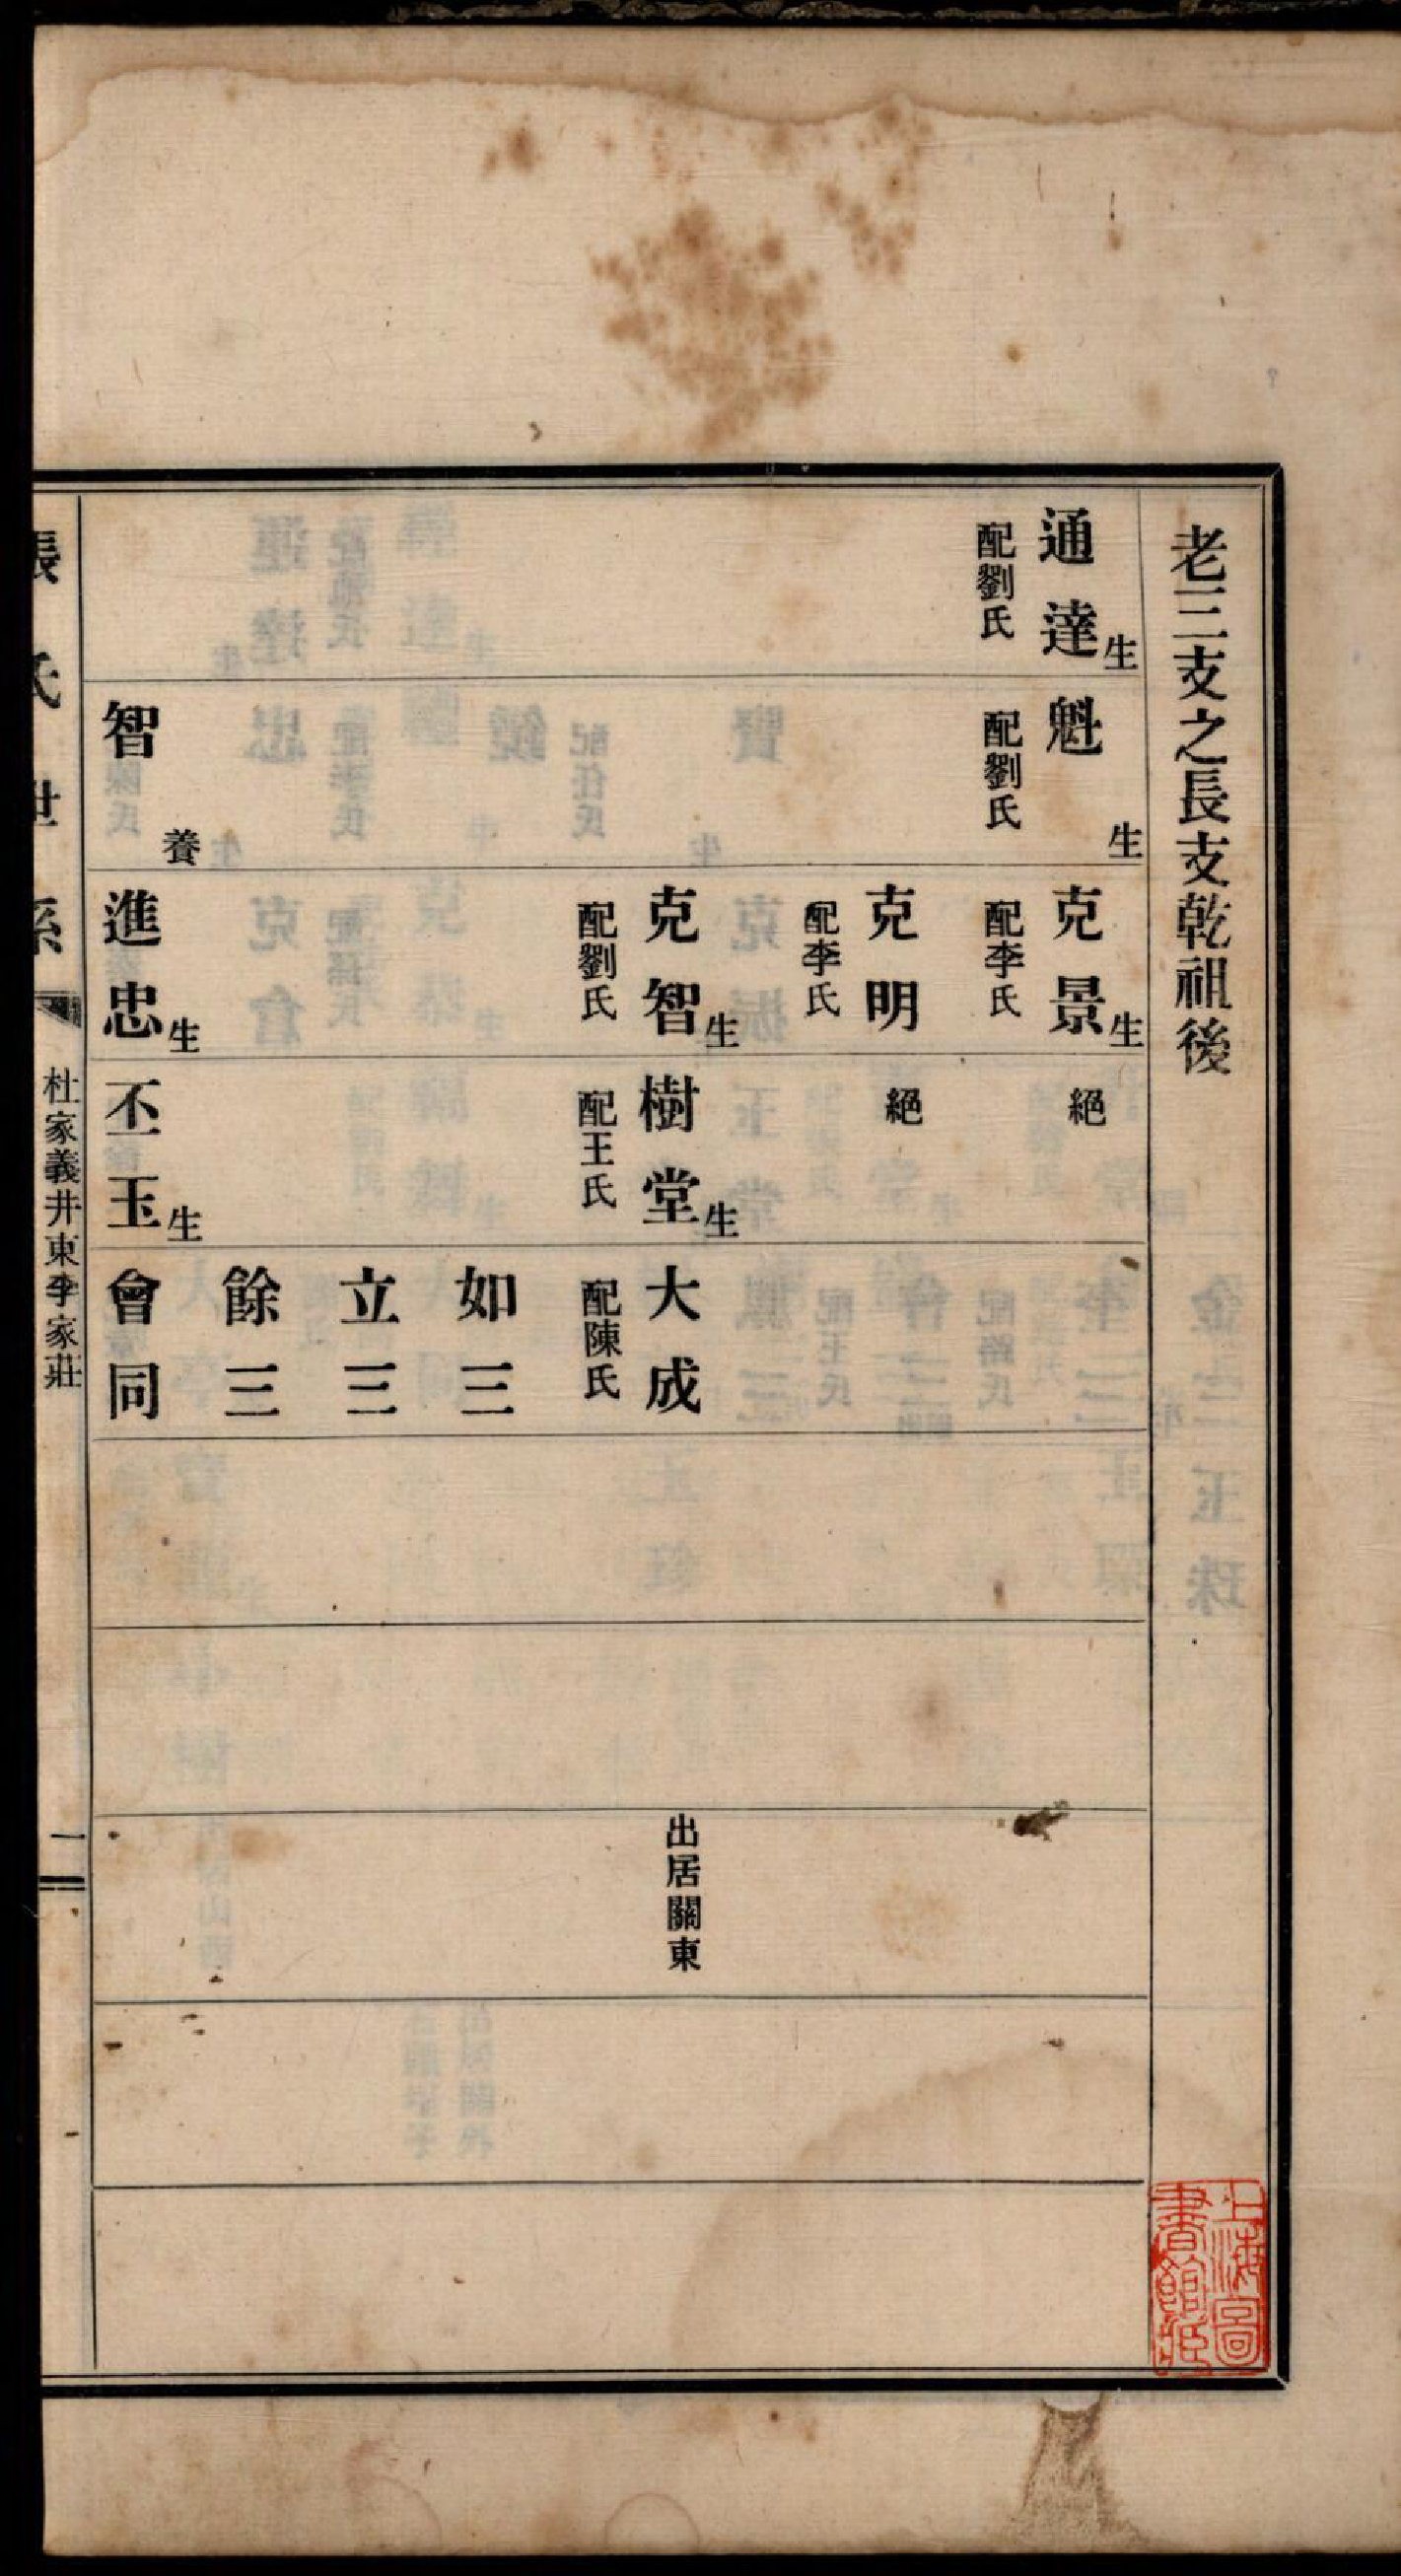 老三支之長支乾祖後
通達
生
配劉氏
魁
生
配劉氏
智
養
克景
生
配李氏
克明
配李氏
克智
生
配劉氏
進忠
生
絕
絕
樹堂
生
配王氏
丕玉
生
大成
配陳氏
如三
立三
餘三
會同
出居關東
張氏世系
杜家義井東李家莊
一
上海圖
書館藏